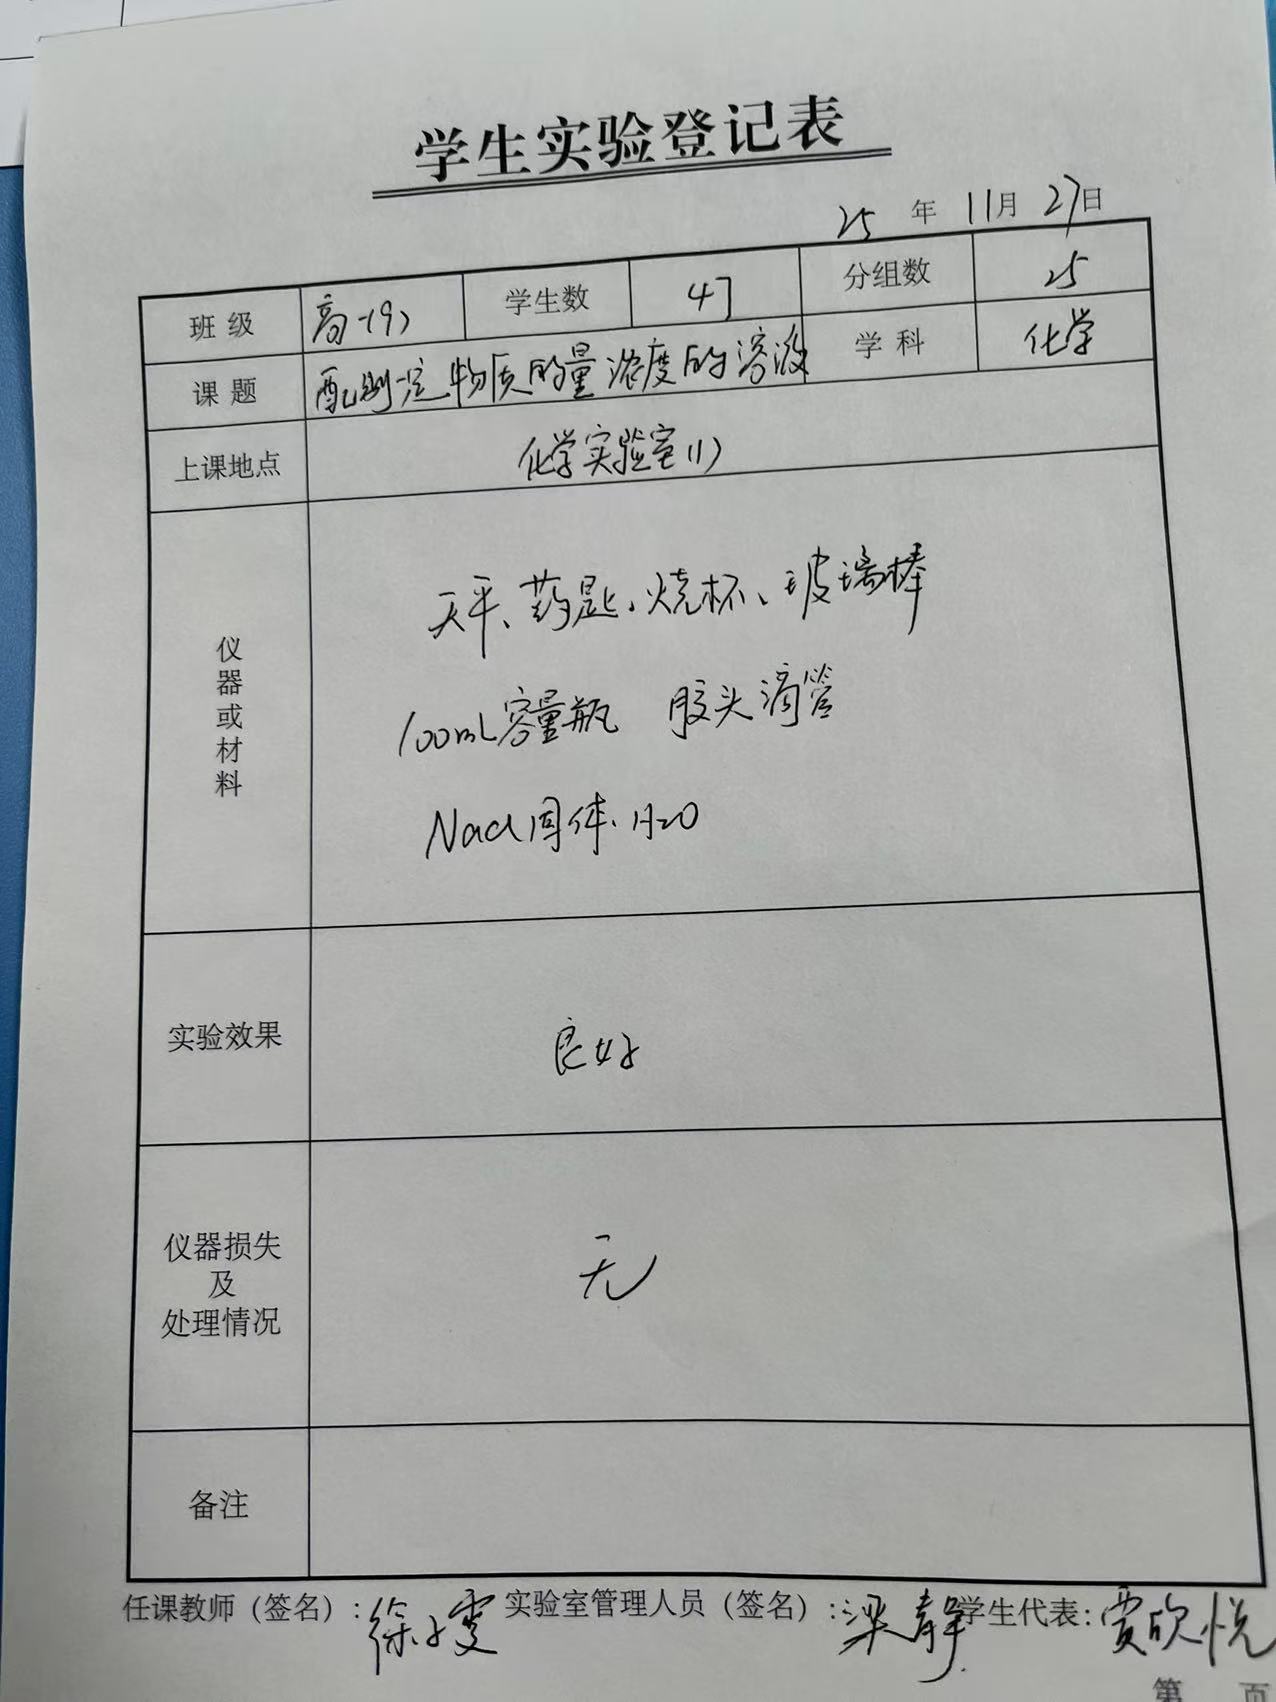 学生实验登记表
25 年 11月 27日
班级 高一(9) 学生数 47 分组数 25
课题 配制一定物质的量浓度的溶液 学科 化学
上课地点 化学实验室(1)
仪器或材料
天平、药匙、烧杯、玻璃棒
100mL容量瓶 胶头滴管
NaCl固体、H2O
实验效果 良好
仪器损失
及
处理情况
无
备注
任课教师（签名）: 徐 雯 实验室管理人员（签名）: 梁静 学生代表: 贾欣悦
第 页